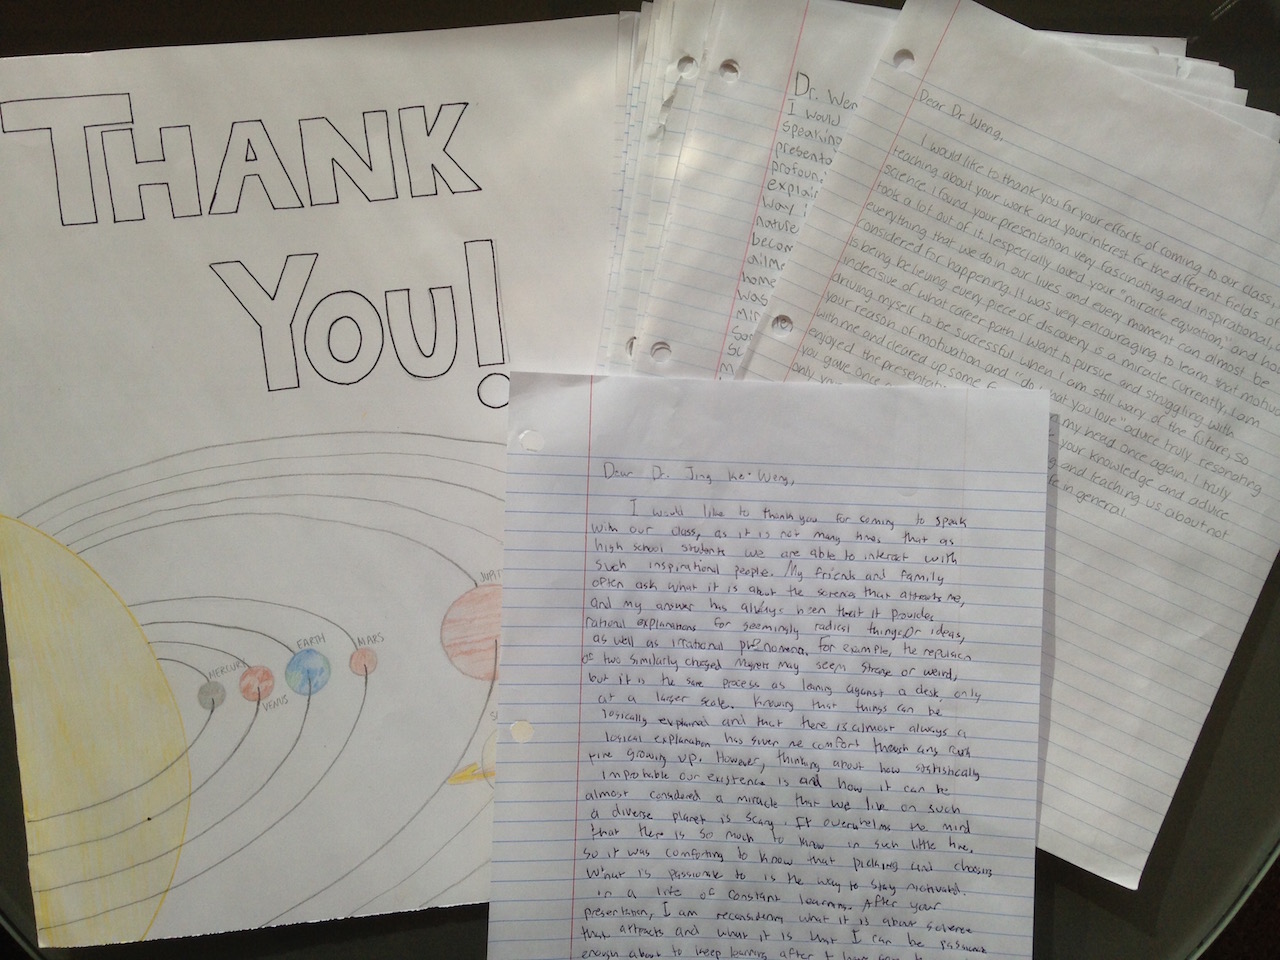 THANK
YOU!
JUPIT
MERCURY
VENUS
EARTH
MARS
Dr. Wen
I would
speaking
presenta
profoun
explain
way i
nature
becom
ailme
home
was
Mir
So
Su
M
Dear Dr Weng,
I would like to thank you for your efforts of coming to our class,
teaching about your work and your interest for the different fields of
science. I found your presentation very fascinating and inspirational,
took a lot out of it. I especially loved your "miracle equation," and how
everything that we do in our lives and every moment can almost be
considered for happening. It was very encouraging to learn that motiva
is being believing every piece of discovery is a miracle. Currently, I am
indecisive of what career path I want to pursue and struggling with
driving myself to be successful when I am still wary of the future, so
your reason of motivation and "do what you love" advice truly resonating
with me and cleared up some my head once again. I truly
enjoyed the presentati your knowledge and advice
you gave once and teaching us about not
only yo in general.
Dear Dr. Jing Ke-Weng,
I would like to thank you for coming to speak
with our class, as it is not many times that as
high school students we are able to interact with
such inspirational people. My friends and family
often ask what it is about the sciences that attracts me,
and my answer has always been that it provides
rational explanations for seemingly radical things or ideas,
as well as irrational phenomena. For example, the repulsion
of two similarly charged magnets may seem strange or weird,
but it is the same process as leaning against a desk, only
at a larger scale. Knowing that things can be
logically explained and that there is almost always a
logical explanation has given me comfort through any rough
time growing up. However, thinking about how statistically
improbable our existence is and how it can be
almost considered a miracle that we live on such
a diverse planet is scary. It overwhelms the mind
that there is so much to know in such little time,
so it was comforting to know that picking and choosing
what is passionate to is the way to stay motivated
in a life of constant learning. After your
presentation, I am reconsidering what it is about science
that attracts and what it is that I can be passionate
enough about to keep learning after I